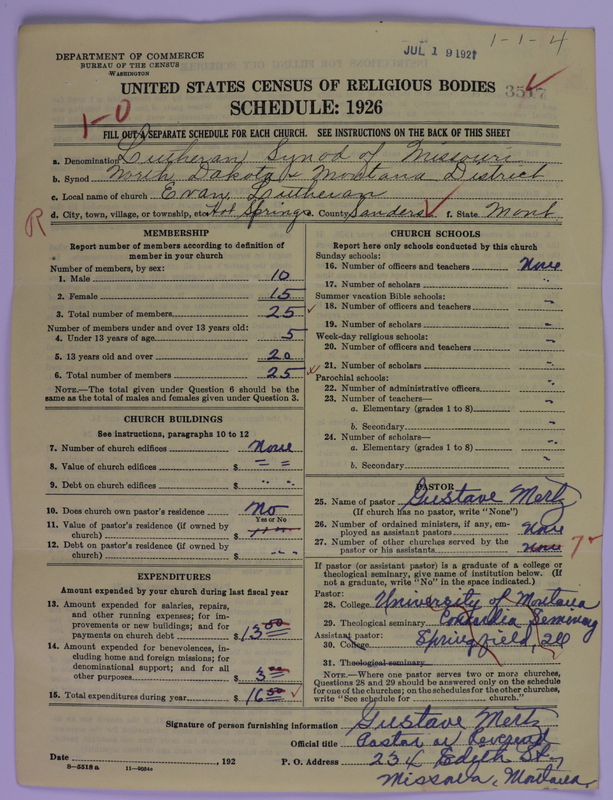 1-1-4
JUL 19 1927
DEPARTMENT OF COMMERCE
BUREAU OF THE CENSUS
WASHINGTON
UNITED STATES CENSUS OF RELIGIOUS BODIES
SCHEDULE: 1926
1-0
FILL OUT A SEPARATE SCHEDULE FOR EACH CHURCH. SEE INSTRUCTIONS ON THE BACK OF THIS SHEET
a. Denomination Lutheran Synod of Missouri
b. Synod North Dakota & Montana District
c. Local name of church Evan. Lutheran
d. City, town, village, or township, etc. Hot Springs e. County Sanders f. State Mont
R
MEMBERSHIP
Report number of members according to definition of member in your church
Number of members, by sex:
1. Male 10
2. Female 15
3. Total number of members 25
Number of members under and over 13 years old:
4. Under 13 years of age 5
5. 13 years old and over 20
6. Total number of members 25
NOTE.—The total given under Question 6 should be the same as the total of males and females given under Question 3.
CHURCH BUILDINGS
See instructions, paragraphs 10 to 12
7. Number of church edifices None
8. Value of church edifices $ " "
9. Debt on church edifices $ " "
10. Does church own pastor's residence No
Yes or No
11. Value of pastor's residence (if owned by church) $
12. Debt on pastor's residence (if owned by church) $
EXPENDITURES
Amount expended by your church during last fiscal year
13. Amount expended for salaries, repairs, and other running expenses; for improvements or new buildings; and for payments on church debt $ 13 00
14. Amount expended for benevolences, including home and foreign missions; for denominational support; and for all other purposes $ 3 00
15. Total expenditures during year $ 16 00
CHURCH SCHOOLS
Report here only schools conducted by this church
Sunday schools:
16. Number of officers and teachers None
17. Number of scholars "
Summer vacation Bible schools:
18. Number of officers and teachers "
19. Number of scholars "
Week-day religious schools:
20. Number of officers and teachers "
21. Number of scholars "
Parochial schools:
22. Number of administrative officers "
23. Number of teachers—
a. Elementary (grades 1 to 8) "
b. Secondary "
24. Number of scholars—
a. Elementary (grades 1 to 8) "
b. Secondary "
PASTOR
25. Name of pastor Gustave Mertz
(If church has no pastor, write "None")
26. Number of ordained ministers, if any, employed as assistant pastors None
27. Number of other churches served by the pastor or his assistants None 7
If pastor (or assistant pastor) is a graduate of a college or theological seminary, give name of institution below. (If not a graduate, write "No" in the space indicated.)
Pastor:
28. College University of Montana
29. Theological seminary Concordia Seminary
Assistant pastor:
30. College Springfield, Ill
31. Theological seminary
NOTE.—Where one pastor serves two or more churches, Questions 28 and 29 should be answered only on the schedule for one of the churches; on the schedules for the other churches, write "See schedule for church."
Signature of person furnishing information Gustave Mertz
Official title Pastor or Reverend
Date , 192 P. O. Address 234 Edith St.,
8—5518 a
Missoula, Montana.